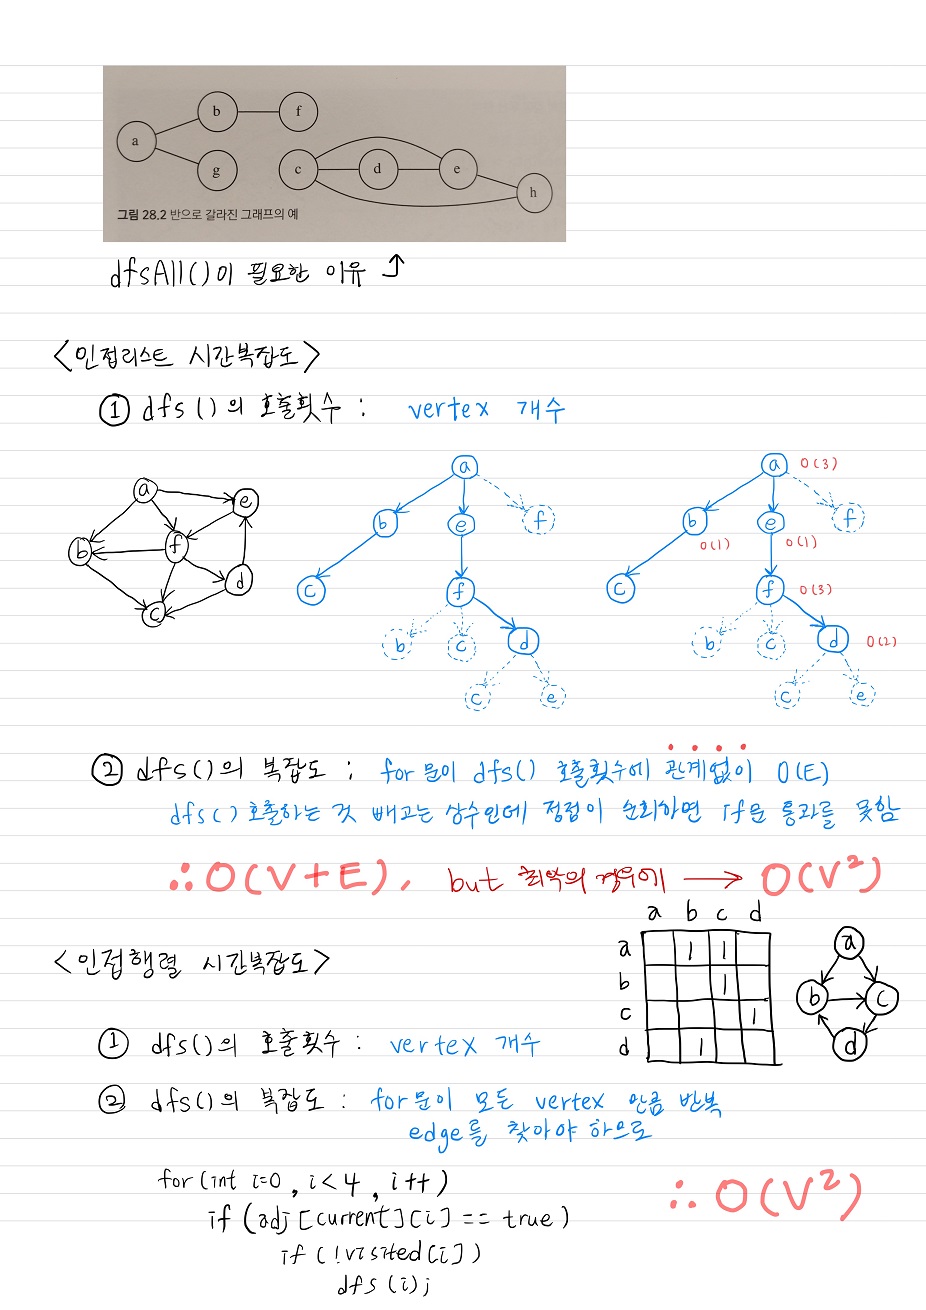 b f
a
g c d e
h
그림 28.2 반으로 갈라진 그래프의 예
dfsAll()이 필요한 이유 ↑
<인접리스트 시간복잡도>
① dfs()의 호출횟수 : vertex 개수
a e b f d c
a
b e f
c f
b c d
c e
a O(3)
b e f
O(1) O(1)
c f O(3)
b c d O(2)
c e
② dfs()의 복잡도 ; for문이 dfs() 호출횟수에 관계없이 O(E)
dfs() 호출하는 것 빼고는 상수인데 정점이 순회하면 if문 통과를 못함
∴ O(V+E), but 최악의 경우에 → O(V²)
a b c d
a 1 1
b 1
c 1
d 1
a
b c
d
<인접행렬 시간복잡도>
① dfs()의 호출횟수 : vertex 개수
② dfs()의 복잡도 : for문이 모든 vertex 만큼 반복
edge를 찾아야 하므로
for(int i=0, i<4, i++)
if(adj[current][i] == true)
if(!visited[i])
dfs(i);
∴ O(V²)